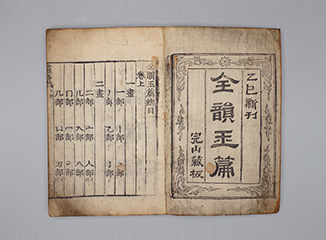 乙巳新刊
全韻玉篇
完山藏板
韻玉篇總目
卷上
一畫
一部 丨部 丶部
丿部 乙部 亅部
二畫
二部 亠部 人部
儿部 入部 八部
冂部 冖部 冫部
几部 凵部 刀部